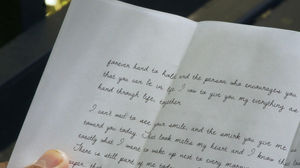 forever hand to hold and the person who encourages you
that you can be in life. I vow to give you my everything as
hand through life, together.
I can't wait to see your smile, and the smirk you give me
toward you today. That look melts my heart and I know that
exactly what I want to wake up next to every morning
There is still part of me that